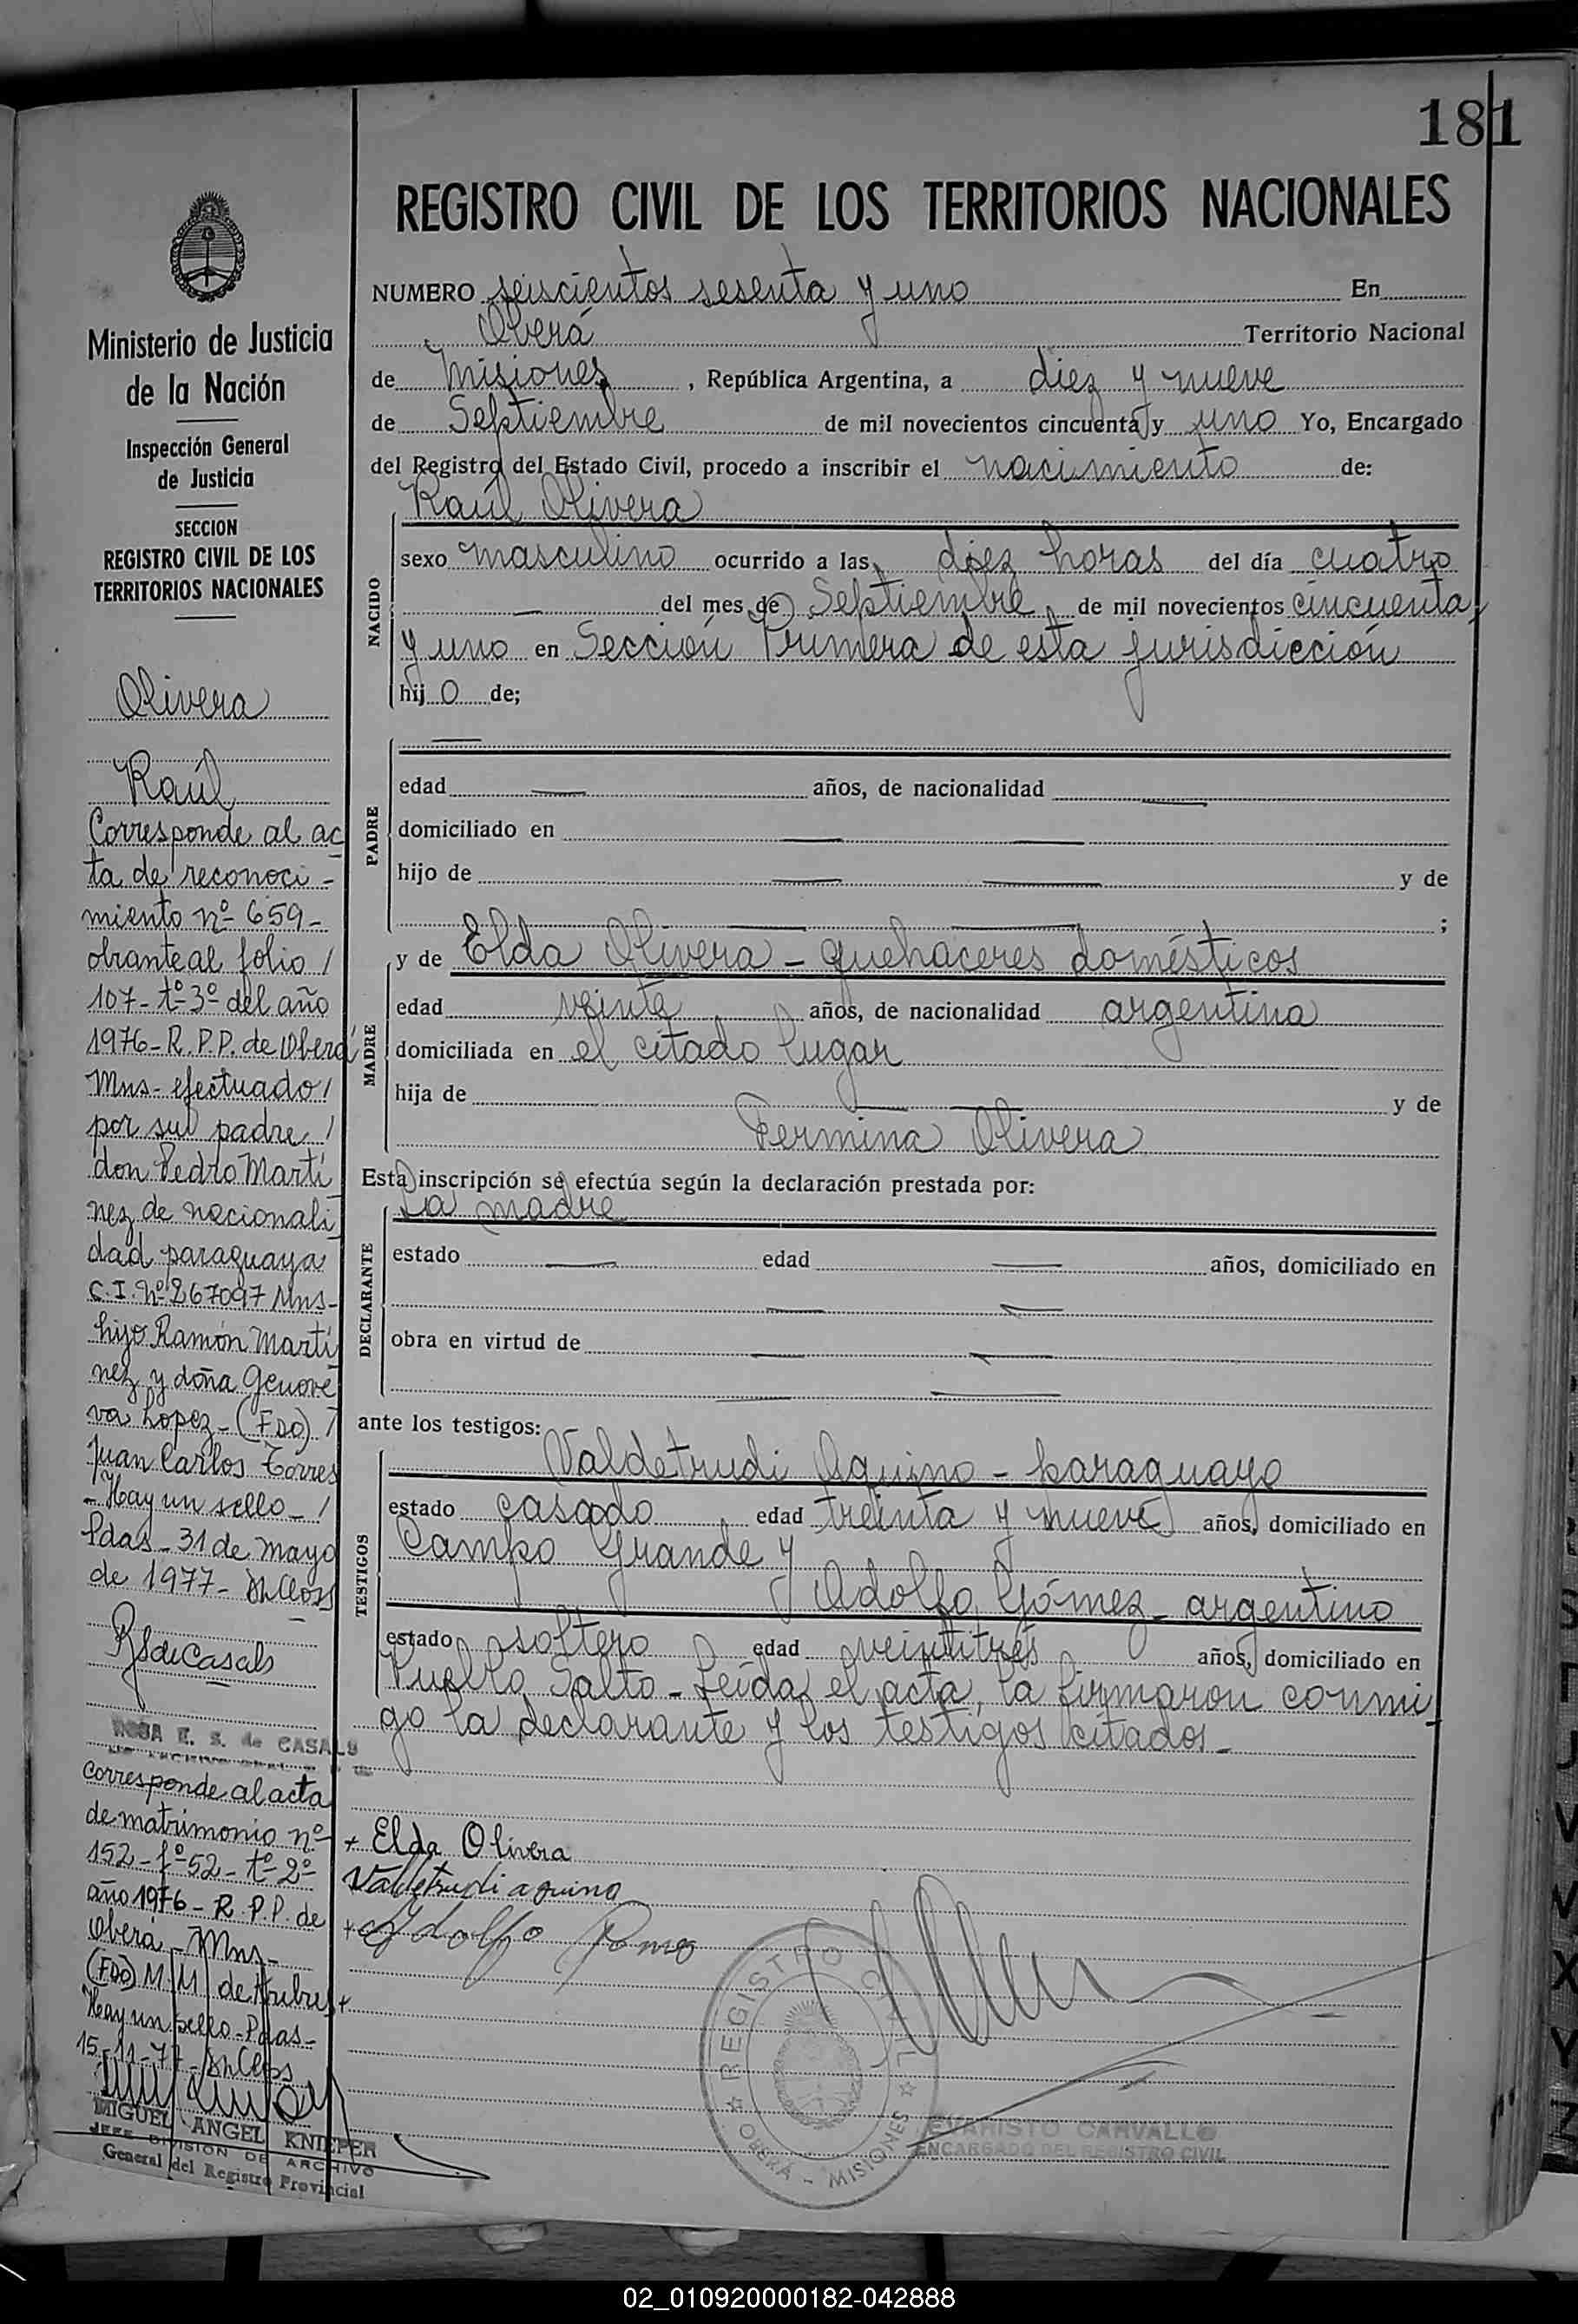 181
Ministerio de Justicia
de la Nación
Inspección General
de Justicia
SECCION
REGISTRO CIVIL DE LOS
TERRITORIOS NACIONALES
Olivera
Raúl
Corresponde al ac
ta de reconoci-
miento nº 659-
obrante al folio /
107- tº 3º del año
1976- R.P.P. de Oberá
Mns- efectuado /
por su padre /
don Pedro Martí
nez de nacionali
dad paraguaya
C.I. Nº 267097 Mns-
hijo Ramón Martí
nez y doña Genove
va Lopez- (FDO) /
Juan Carlos Torres
- Hay un sello- /
Pdas- 31 de mayo
de 1977-
RSdeCasals
ROSA E. S. de CASALS
Corresponde al acta
de matrimonio nº
152- fº 52- tº 2º
año 1976- R.P.P. de
Oberá- Mns-
(FDO) M.M. de
Hay un sello- Pdas-
15-11-77-
MIGUEL ANGEL KNIEPER
JEFE DIVISION DE ARCHIVO
General del Registro Provincial
REGISTRO CIVIL DE LOS TERRITORIOS NACIONALES
NUMERO seiscientos sesenta y uno En
Oberá Territorio Nacional
de Misiones, República Argentina, a diez y nueve
de Septiembre de mil novecientos cincuenta y uno Yo, Encargado
del Registro del Estado Civil, procedo a inscribir el nacimiento de:
Raúl Olivera
NACIDO
sexo masculino ocurrido a las diez horas del día cuatro
del mes de Septiembre de mil novecientos cincuenta
y uno en Sección Primera de esta jurisdicción
hijo de;
PADRE
edad años, de nacionalidad
domiciliado en
hijo de y de
;
MADRE
y de Elda Olivera - quehaceres domésticos
edad veinte años, de nacionalidad argentina
domiciliada en el citado lugar
hija de y de
Fermina Olivera
Esta inscripción se efectúa según la declaración prestada por:
La madre
DECLARANTE
estado edad años, domiciliado en
obra en virtud de
ante los testigos:
TESTIGOS
Valdetrudi Aquino - paraguayo
estado casado edad treinta y nueve años, domiciliado en
Campo Grande y
Adolfo Gómez - argentino
estado soltero edad veintitres años, domiciliado en
Pueblo Salto - Leída el acta, la firmaron conmi
go la declarante y los testigos citados-
+ Elda Olivera
Valdetrudi aquino
+ Adolfo Gomes
REGISTRO CIVIL
OBERÁ - MISIONES
EVARISTO CARVALLO
ENCARGADO DEL REGISTRO CIVIL
02_010920000182-042888